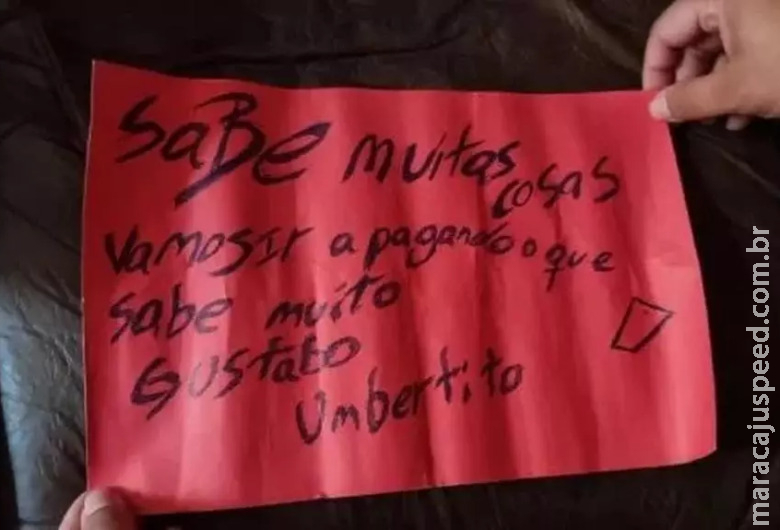 SaBe muitas
cosas
Vamosir apagando o que
sabe muito
Gustabo
Umbertito
maracajuspeed.com.br